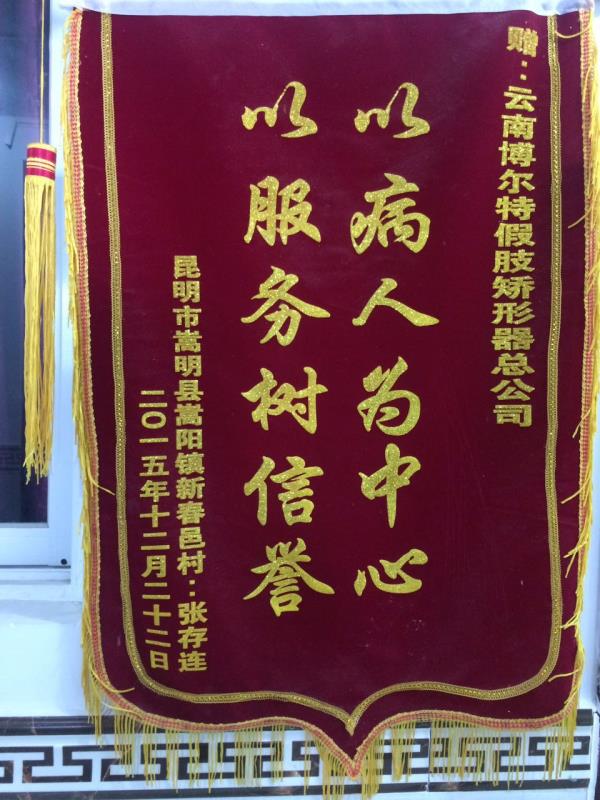 赠：云南博尔特假肢矫形器总公司
以病人为中心
以服务树信誉
昆明市嵩明县嵩阳镇新春邑村：张存连
二〇一五年十二月二十二日